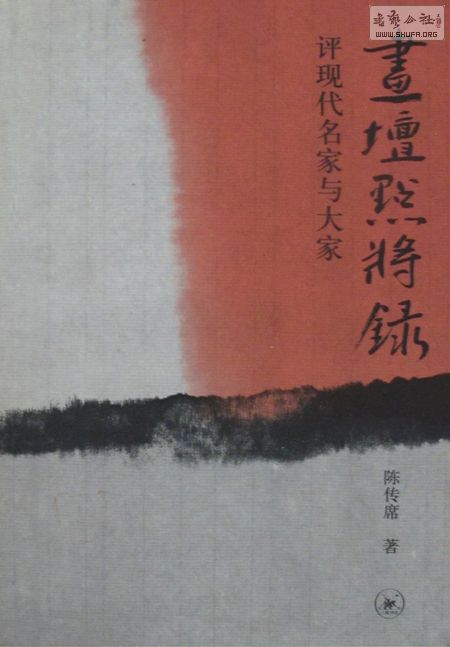 畫壇點將録
评现代名家与大家
陈传席 著
书艺公社
www.SHUFA.ORG